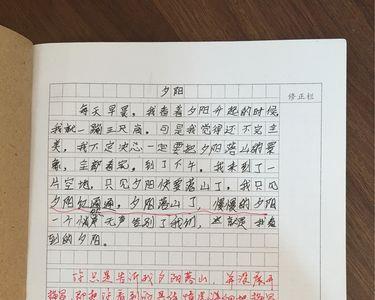 夕阳
修正栏
每天早晨，我看着夕阳升起的时候
我就一蹦三尺高，可是我觉得还不完
美，我下定决心一定要把夕阳落山的景
象，全都看完，到了下午，我来到了一
片空地，只见夕阳快要落山了，我只见
夕阳红通通，夕阳落山了，慢慢的夕阳
一个悄声无声告别了我们，这就是我看
到的夕阳。
你只是告诉我夕阳落山 并没展开